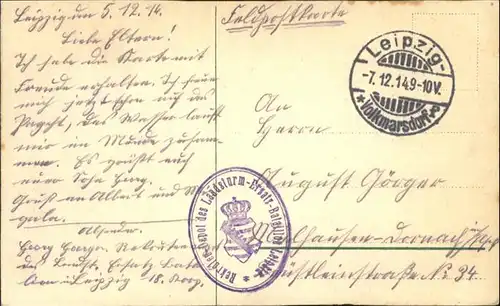 Leipzig den 5.12.14.
Liebe Eltern!
Ich habe die Karte mit
Freude erhalten. Ich freue
mich jetzt schon auf das
Paket, das Wasser lauft
mir im Munde zusam-
men. Es grüßt euch
euer Sohn Georg.
Gruß an Albert und
Absender.
Georg Görger. Rekruten
des Landst. Ersatz Batail
lon Leipzig 18. Korp.
Feldpostkarte
Leipzig-
-7.12.14.9-10V.
* Volkmarsdorf *
An
Herrn
August Görger
Mülhausen-Dornach
No 34
* Rekruten-Depot des Landsturm-Ersatz-Bataillon Leipzig *